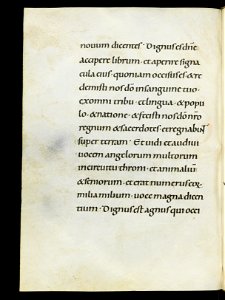 nouum dicentes · Dignus es dñe
accipere librum · et aperire signa
cula eius quoniam occisus es & re
demisti nos dõ in sanguine tuo
ex omni tribu · et lingua · & popu
lo · & natione · & fecisti nos dõ nrõ
regnum & sacerdotes · et regnabim'
super terram · Et uidi et audiui
uocem angelorum multorum
in circuitu throni · et animaliũ
& seniorum · et erat numerus eor
milia milium · uoce magna dicen
tium · Dignus est agnus qui occi